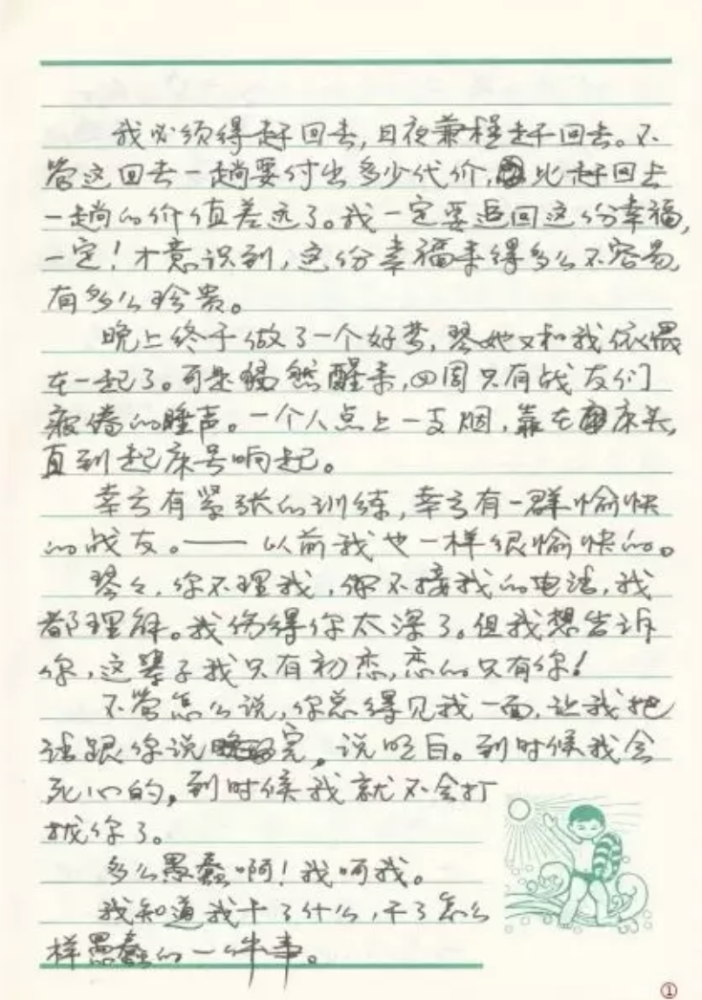 我必须得赶回去,日夜兼程赶回去。不
管这回去一趟要付出多少代价,比赶回去
一趟的价值差远了。我一定要追回这份幸福,
一定!才意识到,这份幸福来得多么不容易,
有多么珍贵。
晚上终于做了一个好梦,琴她又和我依偎
在一起了。可是猛然醒来,四周只有战友们
疲倦的睡声。一个人点上一支烟,靠在床头,
直到起床号响起。
幸亏有紧张的训练,幸亏有一群愉快
的战友。——以前我也一样很愉快的。
琴々,你不理我,你不接我的电话,我
都理解。我伤得你太深了。但我想告诉
你,这辈子我只有初恋,恋的只有你!
不管怎么说,你总得见我一面,让我把
话跟你说完,说明白。到时候我会
死心的,到时候我就不会打
扰你了。
多么愚蠢啊!我呵我。
我知道我干了什么,干了怎么
样愚蠢的一件事。
①